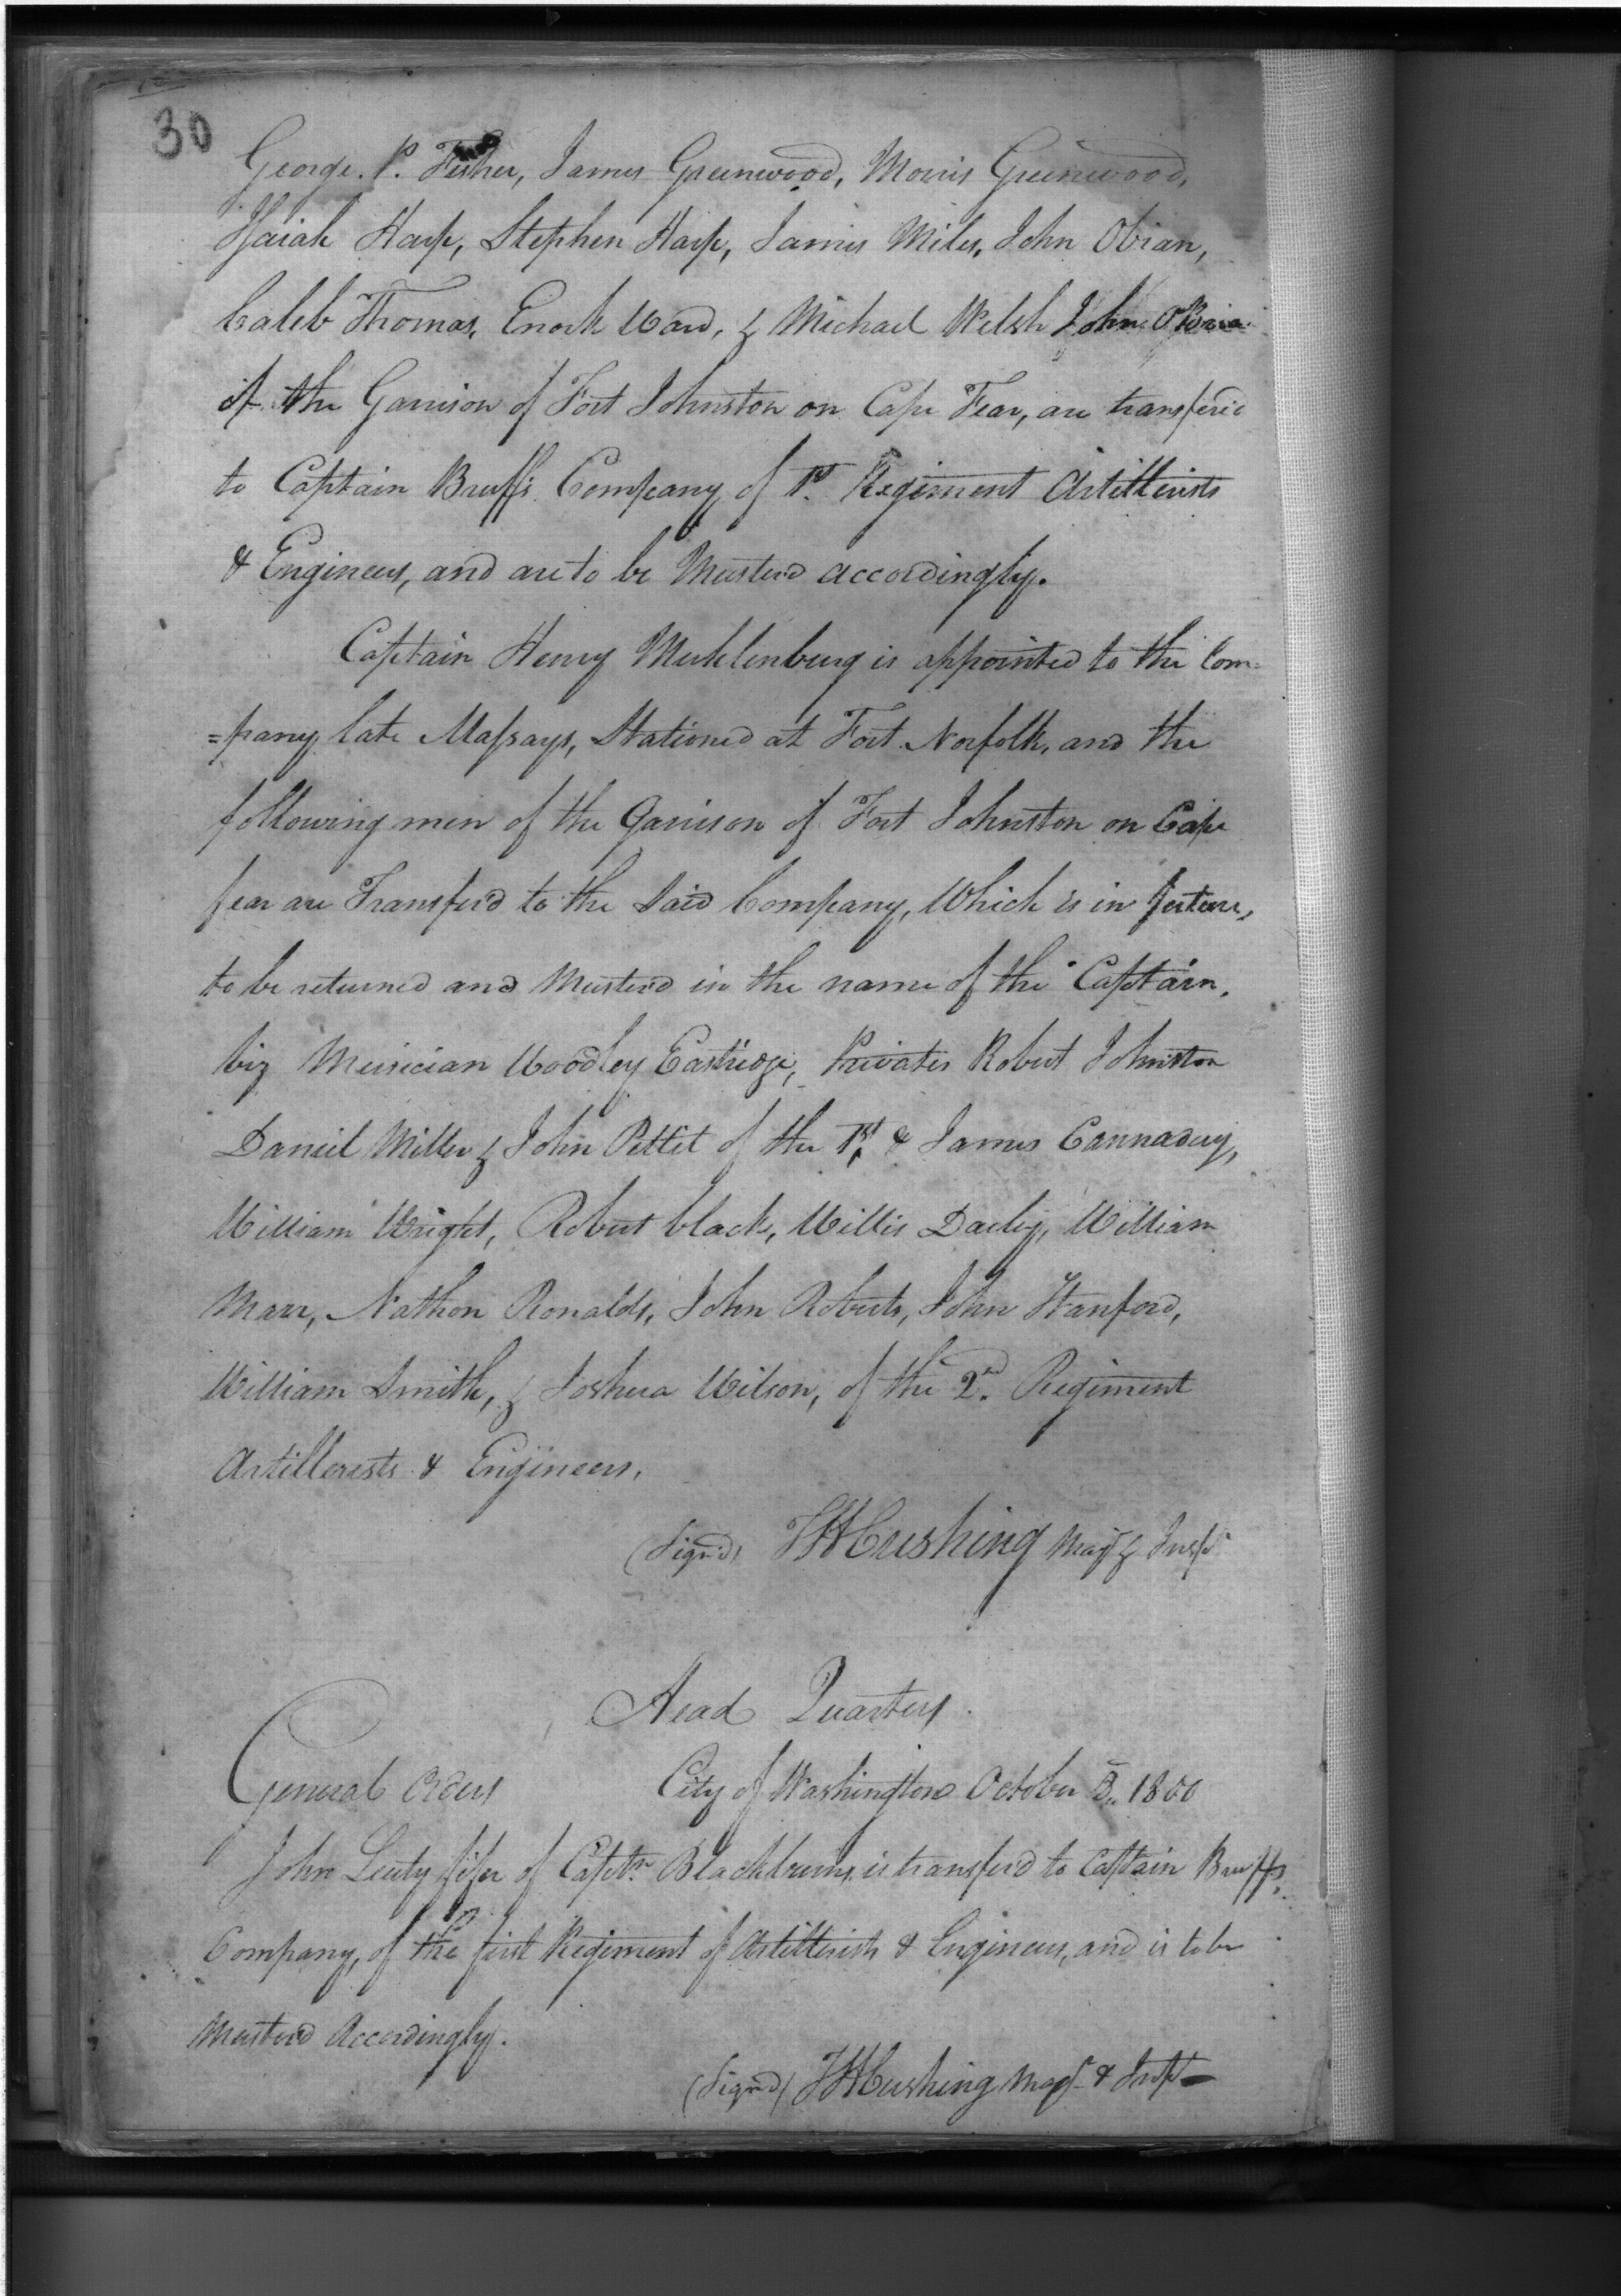 30
George. P. Fisher, James Greenwood, Morris Greenwood,
Isaiah Harp, Stephen Harp, James Miles, John Obrian,
Caleb Thomas, Enock Ward, & Michael Welsh John
of the Garrison of Fort Johnston on Cape Fear, are transfered
to Captain Bruffs Company of 1st. Regiment Artillerists
& Engineers, and are to be Musterd accordingly.
Captain Henry Muhlenburg is appointed to the Com=
=pany late Massays, Stationed at Fort Norfolk, and the
following men of the Garrison of Fort Johnston on Cape
fear are Transfer'd to the Said Company, Which is in future,
to be returned and Muster'd in the name of the Captain,
Viz Musician Woodley Eastridge, Privates Robert Johnston
Daniel Miller & John Pettit of the 1st. & James Cannaduy,
William Wright, Robert black, Willis Daily, William
Marr, Nathon Ronalds, John Roberts, John Stanford,
William Smith, & Joshua Wilson, of the 2nd. Regiment
Artillerests & Engineers.
(Sign'd) THCushing Majr & Inspr
Head Quarters
General orders City of Washington October 1800
John Leuty fifer of Captn. Blackburns, is transferd to Captain Bruffs,
Company, of the first Regiment of Artillerists & Engineers, and is to be
Musterd Accordingly.
(Sign'd) THCushing Majr & Inspr